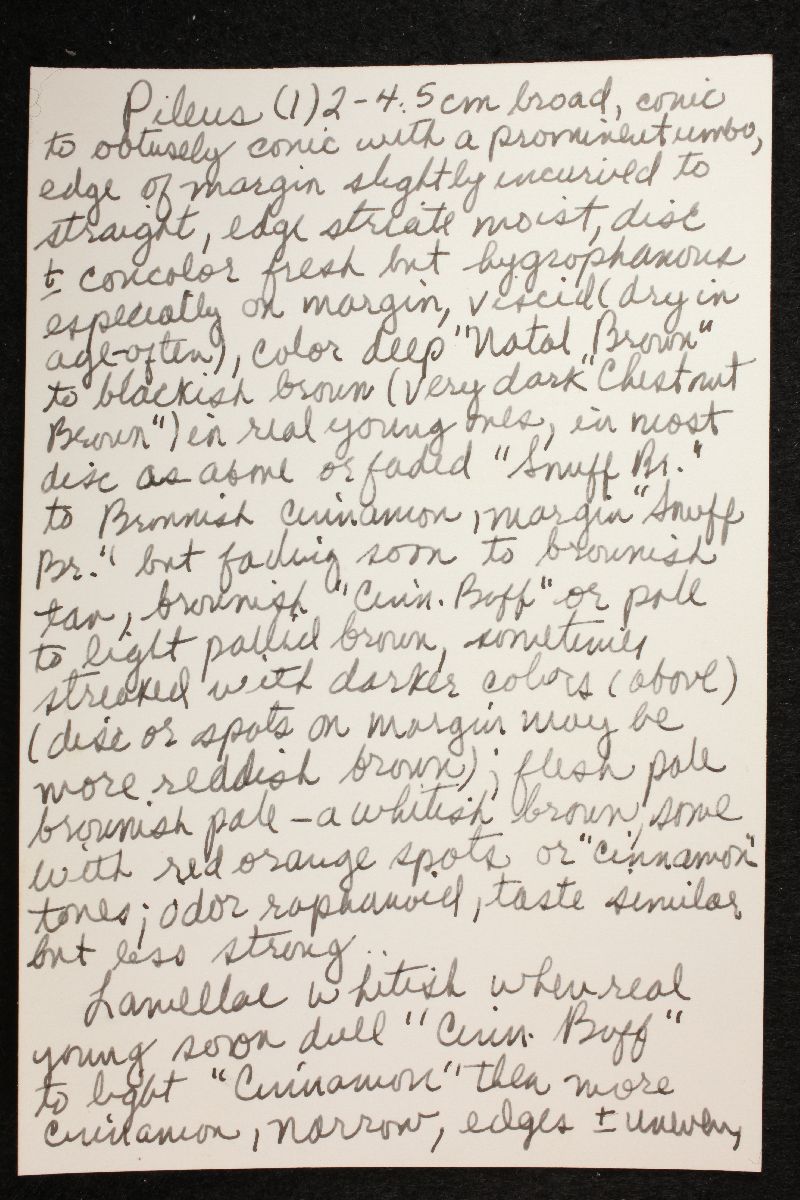 Pileus (1) 2-4.5 cm broad, conic
to obtusely conic with a prominent umbo,
edge of margin slightly incurved to
straight, edge striate moist, disc
± concolor fresh but hygrophanous
especially on margin, viscid (dry in
age-often), color deep "Natal Brown"
to blackish brown (very dark "Chestnut
Brown") in real young ones, in most
disc as above or faded "Snuff Br."
to Brownish cinnamon, margin "Snuff
Br." but fading soon to brownish
tan, brownish "Cinn. Buff" or pale
to light pallid brown, sometimes
streaked with darker colors (above)
(disc or spots on margin may be
more reddish brown); flesh pale
brownish pale - a whitish brown, some
with red orange spots or "cinnamon"
tones; odor raphanoid, taste similar
but less strong.
Lamellae whitish when real
young soon dull "Cinn. Buff"
to light "Cinnamon" then more
cinnamon, narrow, edges ± uneven,